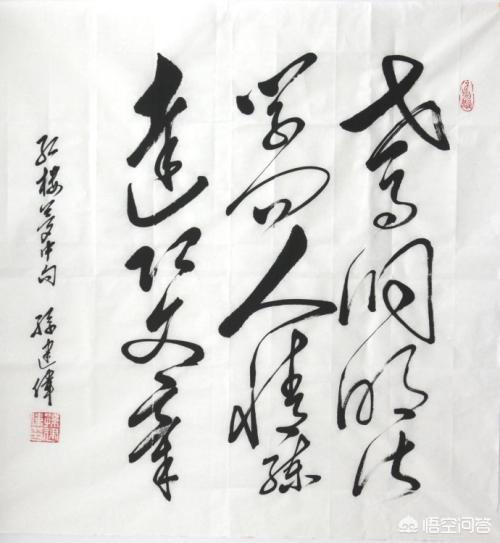 世事洞明皆
学问人情练
達即文章
红楼梦中句 孫建偉
悟空问答